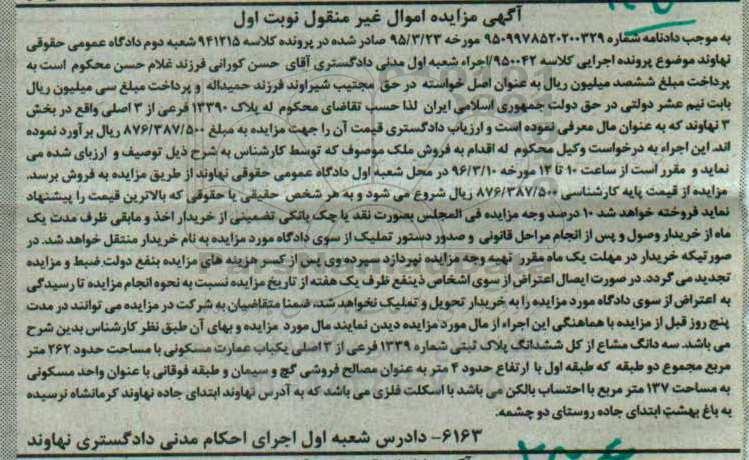 آگهی مزایده اموال غیر منقول نوبت اول
به موجب دادنامه شماره ۹۵۰۹۹۷۸۵۲۰۲۰۰۳۲۹ مورخه ۹۵/۳/۲۳ صادر شده در پرونده کلاسه ۹۴۱۲۱۵ شعبه دوم دادگاه عمومی حقوقی
نهاوند موضوع پرونده اجرایی کلاسه ۹۵۰۰۴۲/اجراء شعبه اول مدنی دادگستری آقای حسن کورانی فرزند غلام حسن محکوم است به
پرداخت مبلغ ششصد میلیون ریال به عنوان اصل خواسته در حق مجتیب شیراوند فرزند حمیداله و پرداخت مبلغ سی میلیون ریال
بابت نیم عشر دولتی در حق دولت جمهوری اسلامی ایران لذا حسب تقاضای محکوم له پلاک ۱۳۳۹۰ فرعی از ۳ اصلی واقع در بخش
۳ نهاوند که به عنوان مال معرفی نموده است و ارزیاب دادگستری قیمت آن را جهت مزایده به مبلغ ۸۷۶/۳۸۷/۵۰۰ ریال برآورد نموده
اند. این اجراء به درخواست وکیل محکوم له اقدام به فروش ملک موصوف که توسط کارشناس به شرح ذیل توصیف و ارزیای شده می
نماید و مقرر است از ساعت ۱۰ تا ۱۲ مورخه ۹۶/۳/۱۰ در محل شعبه اول دادگاه عمومی حقوقی نهاوند از طریق مزایده به فروش برسد.
مزایده از قیمت پایه کارشناسی ۸۷۶/۳۸۷/۵۰۰ ریال شروع می شود و به هر شخص حقیقی یا حقوقی که بالاترین قیمت را پیشنهاد
نماید فروخته خواهد شد ۱۰ درصد وجه مزایده فی المجلس بصورت نقد یا چک بانکی تضمینی از خریدار اخذ و مابقی ظرف مدت یک
ماه از خریدار وصول و پس از انجام مراحل قانونی و صدور دستور تملیک از سوی دادگاه مورد مزایده به نام خریدار منتقل خواهد شد. در
صورتیکه خریدار در مهلت یک ماه مقرر تهیه وجه مزایده نپردازد سپرده وی پس از کسر هزینه های مزایده بنفع دولت ضبط و مزایده
تجدید می گردد. در صورت ایصال اعتراض از سوی اشخاص ذینفع ظرف یک هفته از تاریخ مزایده نسبت به نحوه انجام مزایده تا رسیدگی
به اعتراض از سوی دادگاه مورد مزایده را به خریدار تحویل و تملیک نخواهد شد، ضمنا متقاضیان به شرکت در مزایده می توانند در مدت
پنج روز قبل از مزایده با هماهنگی این اجراء از مال مورد مزایده دیدن نمایند مال مورد مزایده و بهای آن طبق نظر کارشناس بدین شرح
می باشد. سه دانگ مشاع از کل ششدانگ پلاک ثبتی شماره ۱۳۳۹ فرعی از ۳ اصلی یکباب عمارت مسکونی با مساحت حدود ۲۶۲ متر
مربع مجموع دو طبقه که طبقه اول با ارتفاع حدود ۴ متر به عنوان مصالح فروشی گچ و سیمان و طبقه فوقانی با عنوان واحد مسکونی
به مساحت ۱۳۷ متر مربع با احتساب بالکن می باشد با اسکلت فلزی می باشد که به آدرس نهاوند ابتدای جاده نهاوند کرمانشاه نرسیده
به باغ بهشت ابتدای جاده روستای دو چشمه.
۶۱۶۳- دادرس شعبه اول اجرای احکام مدنی دادگستری نهاوند